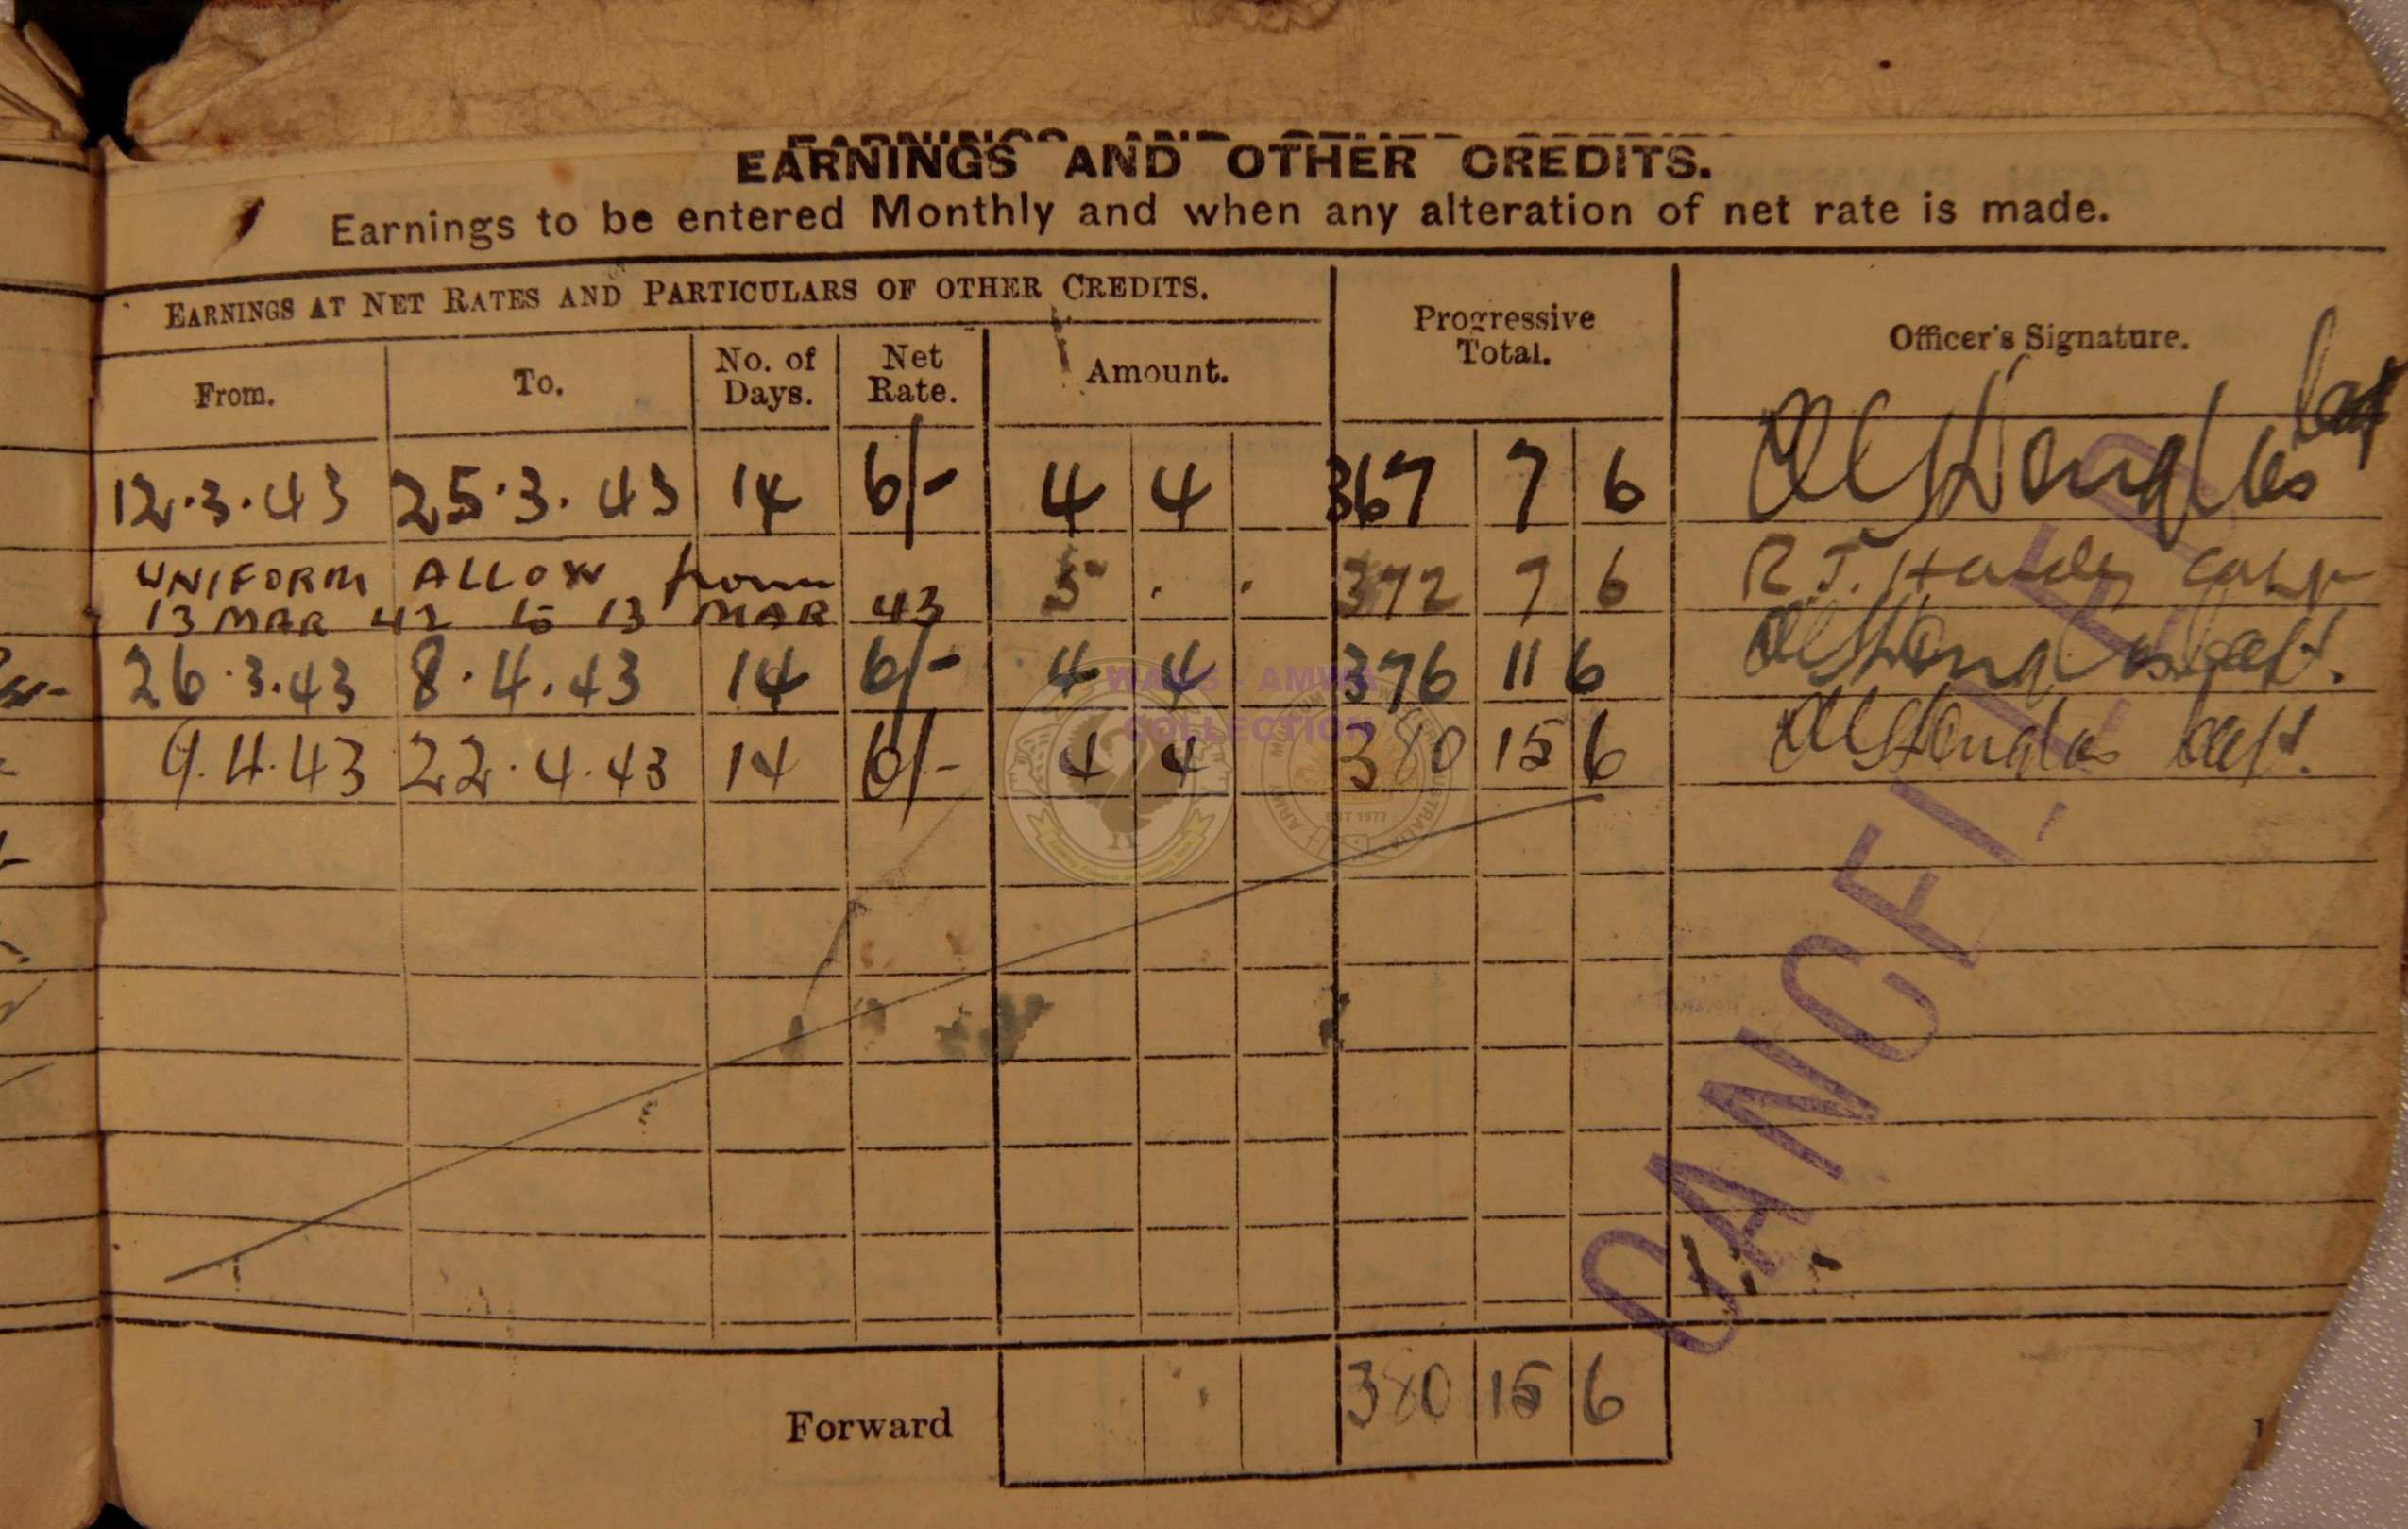 EARNINGS AND OTHER CREDITS.
Earnings to be entered Monthly and when any alteration of net rate is made.
EARNINGS AT NET RATES AND PARTICULARS OF OTHER CREDITS.
Progressive Total.
Officer's Signature.
From. To. No. of Days. Net Rate. Amount.
12.3.43 25.3.43 14 6/- 4 4 367 7 6
UNIFORM ALLOW from 5 . . 372 7 6 R.J.
13 MAR 42 to 13 MAR 43
26.3.43 8.4.43 14 6/- 4 4 376 11 6 Capt.
9.4.43 22.4.43 14 6/- 4 4 380 15 6 Capt.
WAAS AMWA
COLLECTION
EST 1977
CANCELLED
Forward 380 15 6